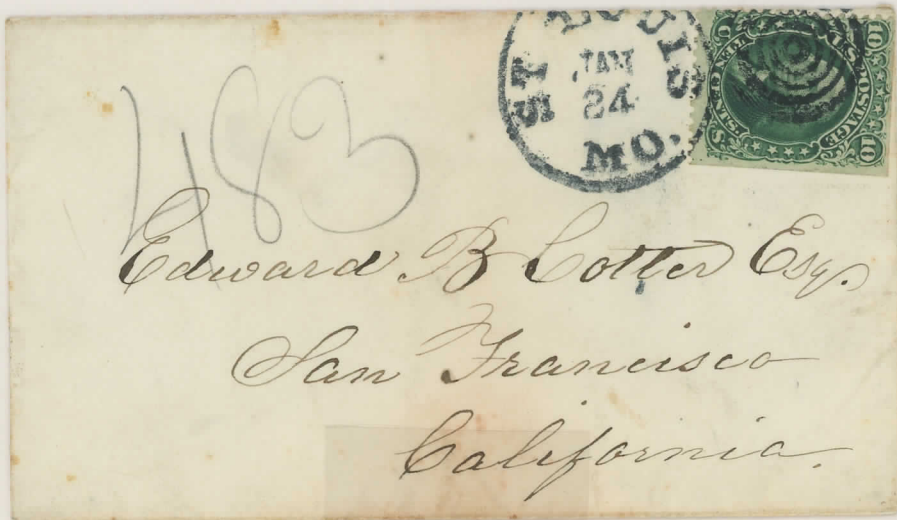 ST LOUIS
JAN
24
MO.
U.S. POSTAGE
TEN CENTS
10
10
483
Edward B Cotter Esq.
San Francisco
California.